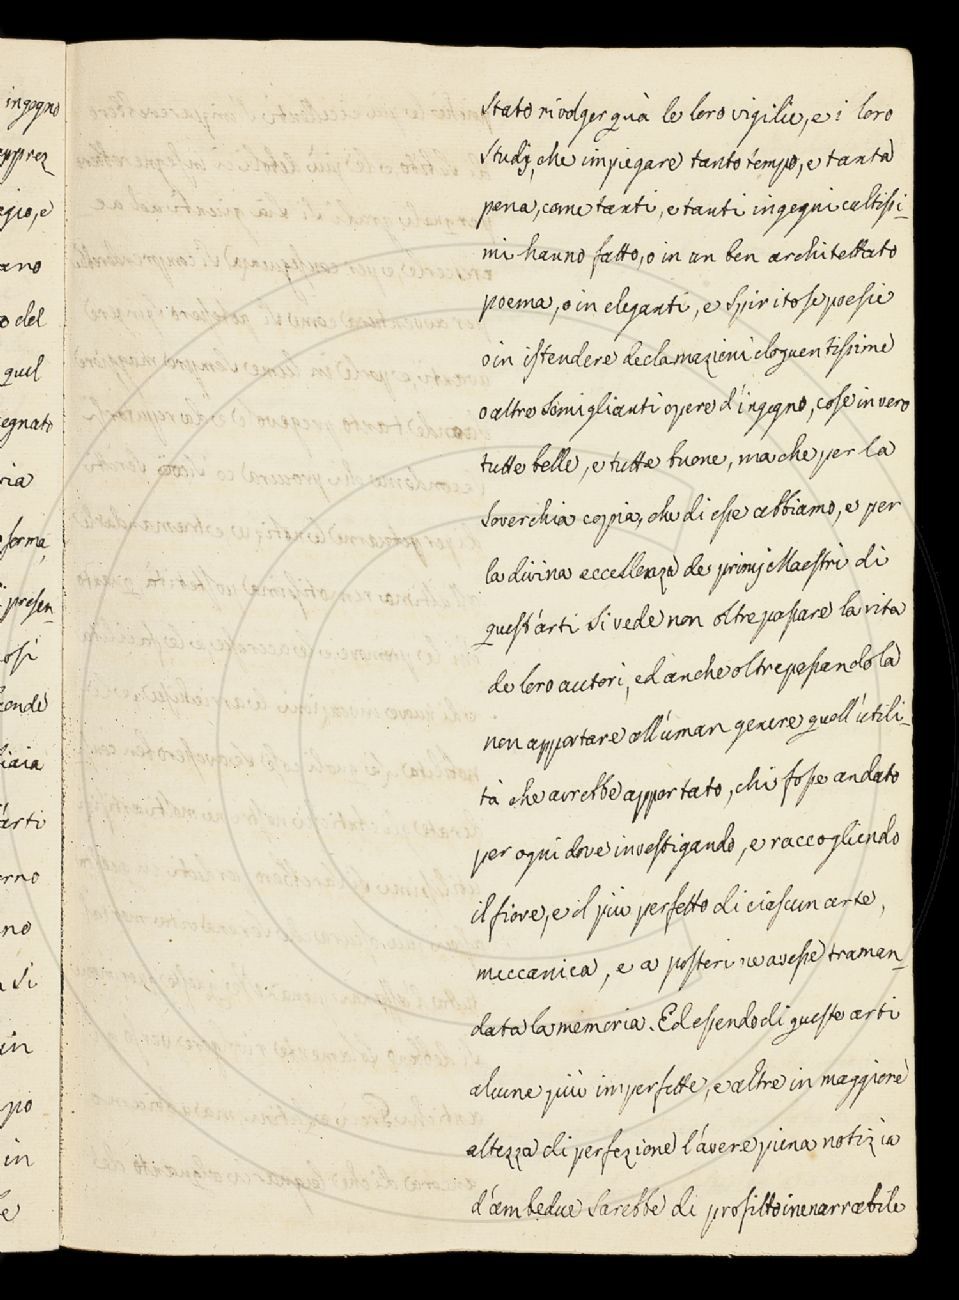 ingegno
apprez
egio, e
ano
o del
quel
segnato
ria
forma,
presen-
osi
conde
liaia
arti
erno
no
si
in
po
in
Stato rivolger quà le loro vigilie, e i loro
Studj, che impiegare tanto tempo, e tanta
pena, come tanti, e tanti ingegni cultissi-
mi hanno fatto, o in un ben architettato
poema, o in eleganti, e spiritose poesie
o in istendere declamazioni eloquentissime
o altre somiglianti opere d'ingegno, cose in vero
tutte belle, e tutte buone, ma che per la
soverchia copia, che di esse abbiamo, e per
la divina eccellenza de primj Maestri di
quest'arti si vede non oltrepassare la vita
de loro autori, ed anche oltrepassandola
non apportare all'uman genere quell'utili-
tà che avrebbe apportato, chi fosse andato
per ogni dove investigando, e raccogliendo
il fiore, e il più perfetto di ciascun arte,
meccanica, e a posteri ne avesse traman-
data la memoria. Ed essendo di queste arti
alcune più imperfette, e altre in maggiore
altezza di perfezione l'avere piena notizia
d'ambedue sarebbe di profitto inenarrabile